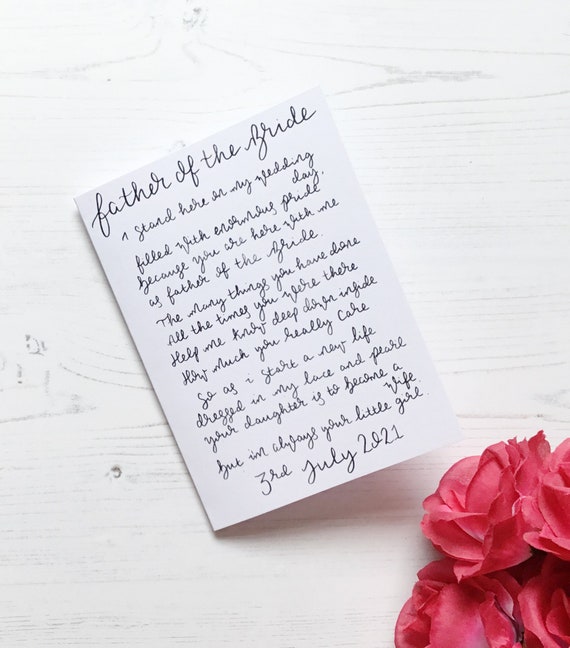 father of the Bride
I stand here on my wedding
day,
filled with enormous pride
because you are here with me
as father of the Bride.
The many things you have done
All the times you were there
Help me know deep down inside
How much you really care
So as i start a new life
dressed in my lace and pearl
your daughter is to become a
wife
but im always your little girl.
3rd July 2021